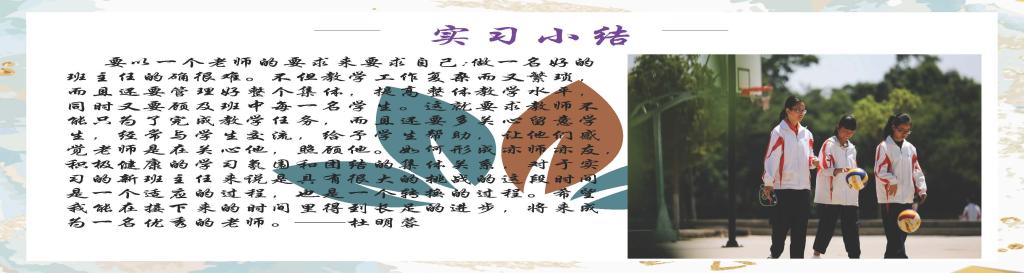 实习小结
要以一个老师的要求来要求自己,做一名好的
班主任的确很难。不但教学工作复杂而又繁琐,
而且还要管理好整个集体,提高整体教学水平,
同时又要顾及班中每一名学生。这就要求教师不
能只为了完成教学任务,而且还要多关心留意学
生,经常与学生交流,给予学生帮助,让他们感
觉老师是在关心他,照顾他。如何形成亦师亦友,
积极健康的学习氛围和团结的集体关系,对于实
习的新班主任来说是具有很大的挑战的这段时间
是一个适应的过程,也是一个转换的过程。希望
我能在接下来的时间里得到长足的进步,将来成
为一名优秀的老师。——杜明蓉